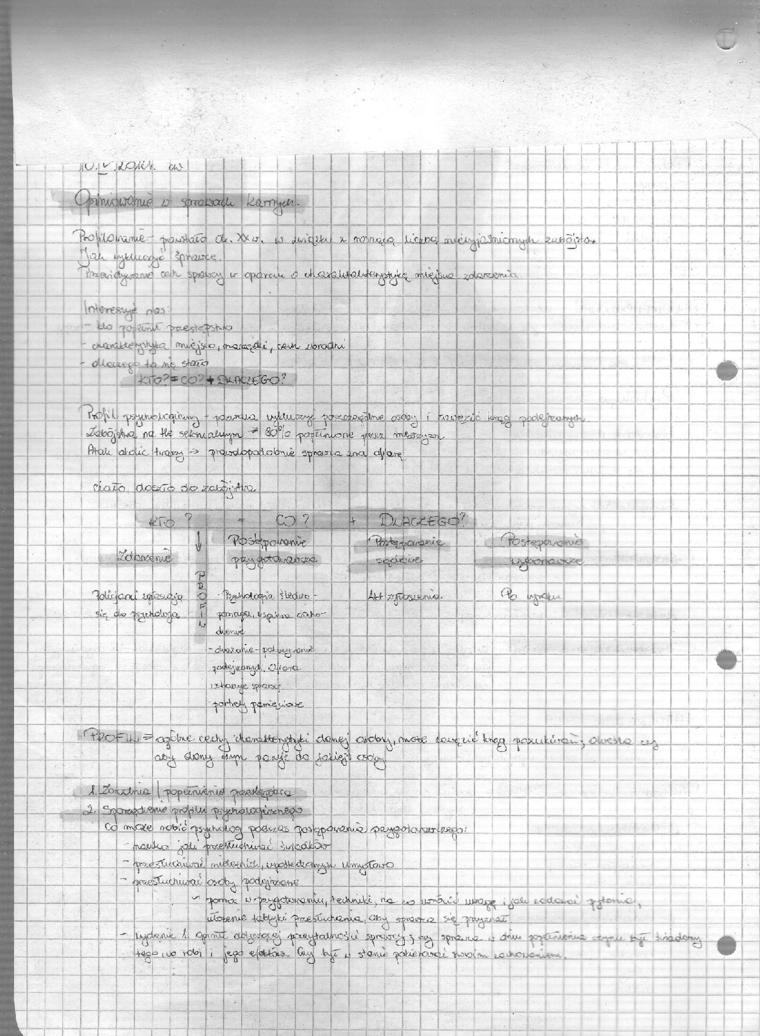 Opiniowanie w sprawach karnych.
Profilowanie - powstało ok. XX w. w związku z rosnącą liczbą niewyjaśnionych zabójstw.
Jak wykluczyć sprawcę.
Przewidywanie cech sprawcy w oparciu o charakterystykę miejsca zdarzenia
Interesuje nas:
- kto popełnił przestępstwo
- charakterystyka miejsca, narzędzi, cech zbrodni
- dlaczego to się stało
KTO? = CO? + DLACZEGO?
Profil psychologiczny - pozwala wykluczyć poszczególne osoby i zawęzić krąg podejrzanych
Zabójstwa na tle seksualnym 80% popełnione przez mężczyzn
Atak okolic twarzy → prawdopodobnie sprawca zna ofiarę
ciało doszło do zabójstwa
KTO? = CO? + DLACZEGO?
Zdarzenie
Postępowanie przygotowawcze
Postępowanie sądowe
Postępowanie wykonawcze
PROFIL
Policjanci zgłaszają
się do psychologa
- Psychologia śledcza -
pomaga, wspiera
- okazanie - pokazywanie
podejrzanych. Ofiara
wskazuje sprawcę
portrety pamięciowe
Po wyroku
PROFIL = ogólne cechy charakterystyki danej osoby, może zawęzić krąg poszukiwań, określa czy
aby dany czyn pasuje do jakiejś osoby
1. Zbrodnia / popełnienie przestępstwa
2. Sporządzenie profilu psychologicznego
Co może robić psycholog podczas postępowania przygotowawczego:
- nauka jak przesłuchiwać świadków
- przesłuchiwać nieletnich, upośledzonych umysłowo
- przesłuchiwać osoby podejrzane
- pomoc w przygotowaniu, techniki, na co zwrócić uwagę i jak zadawać pytania,
ułożenie taktyki przesłuchania, aby sprawca się przyznał
- wydanie 1. opinii dotyczącej poczytalności sprawcy, czy sprawca w dniu popełnienia czynu był świadomy
tego, co robi i jego efektów. Czy był w stanie pokierować swoim zachowaniem.